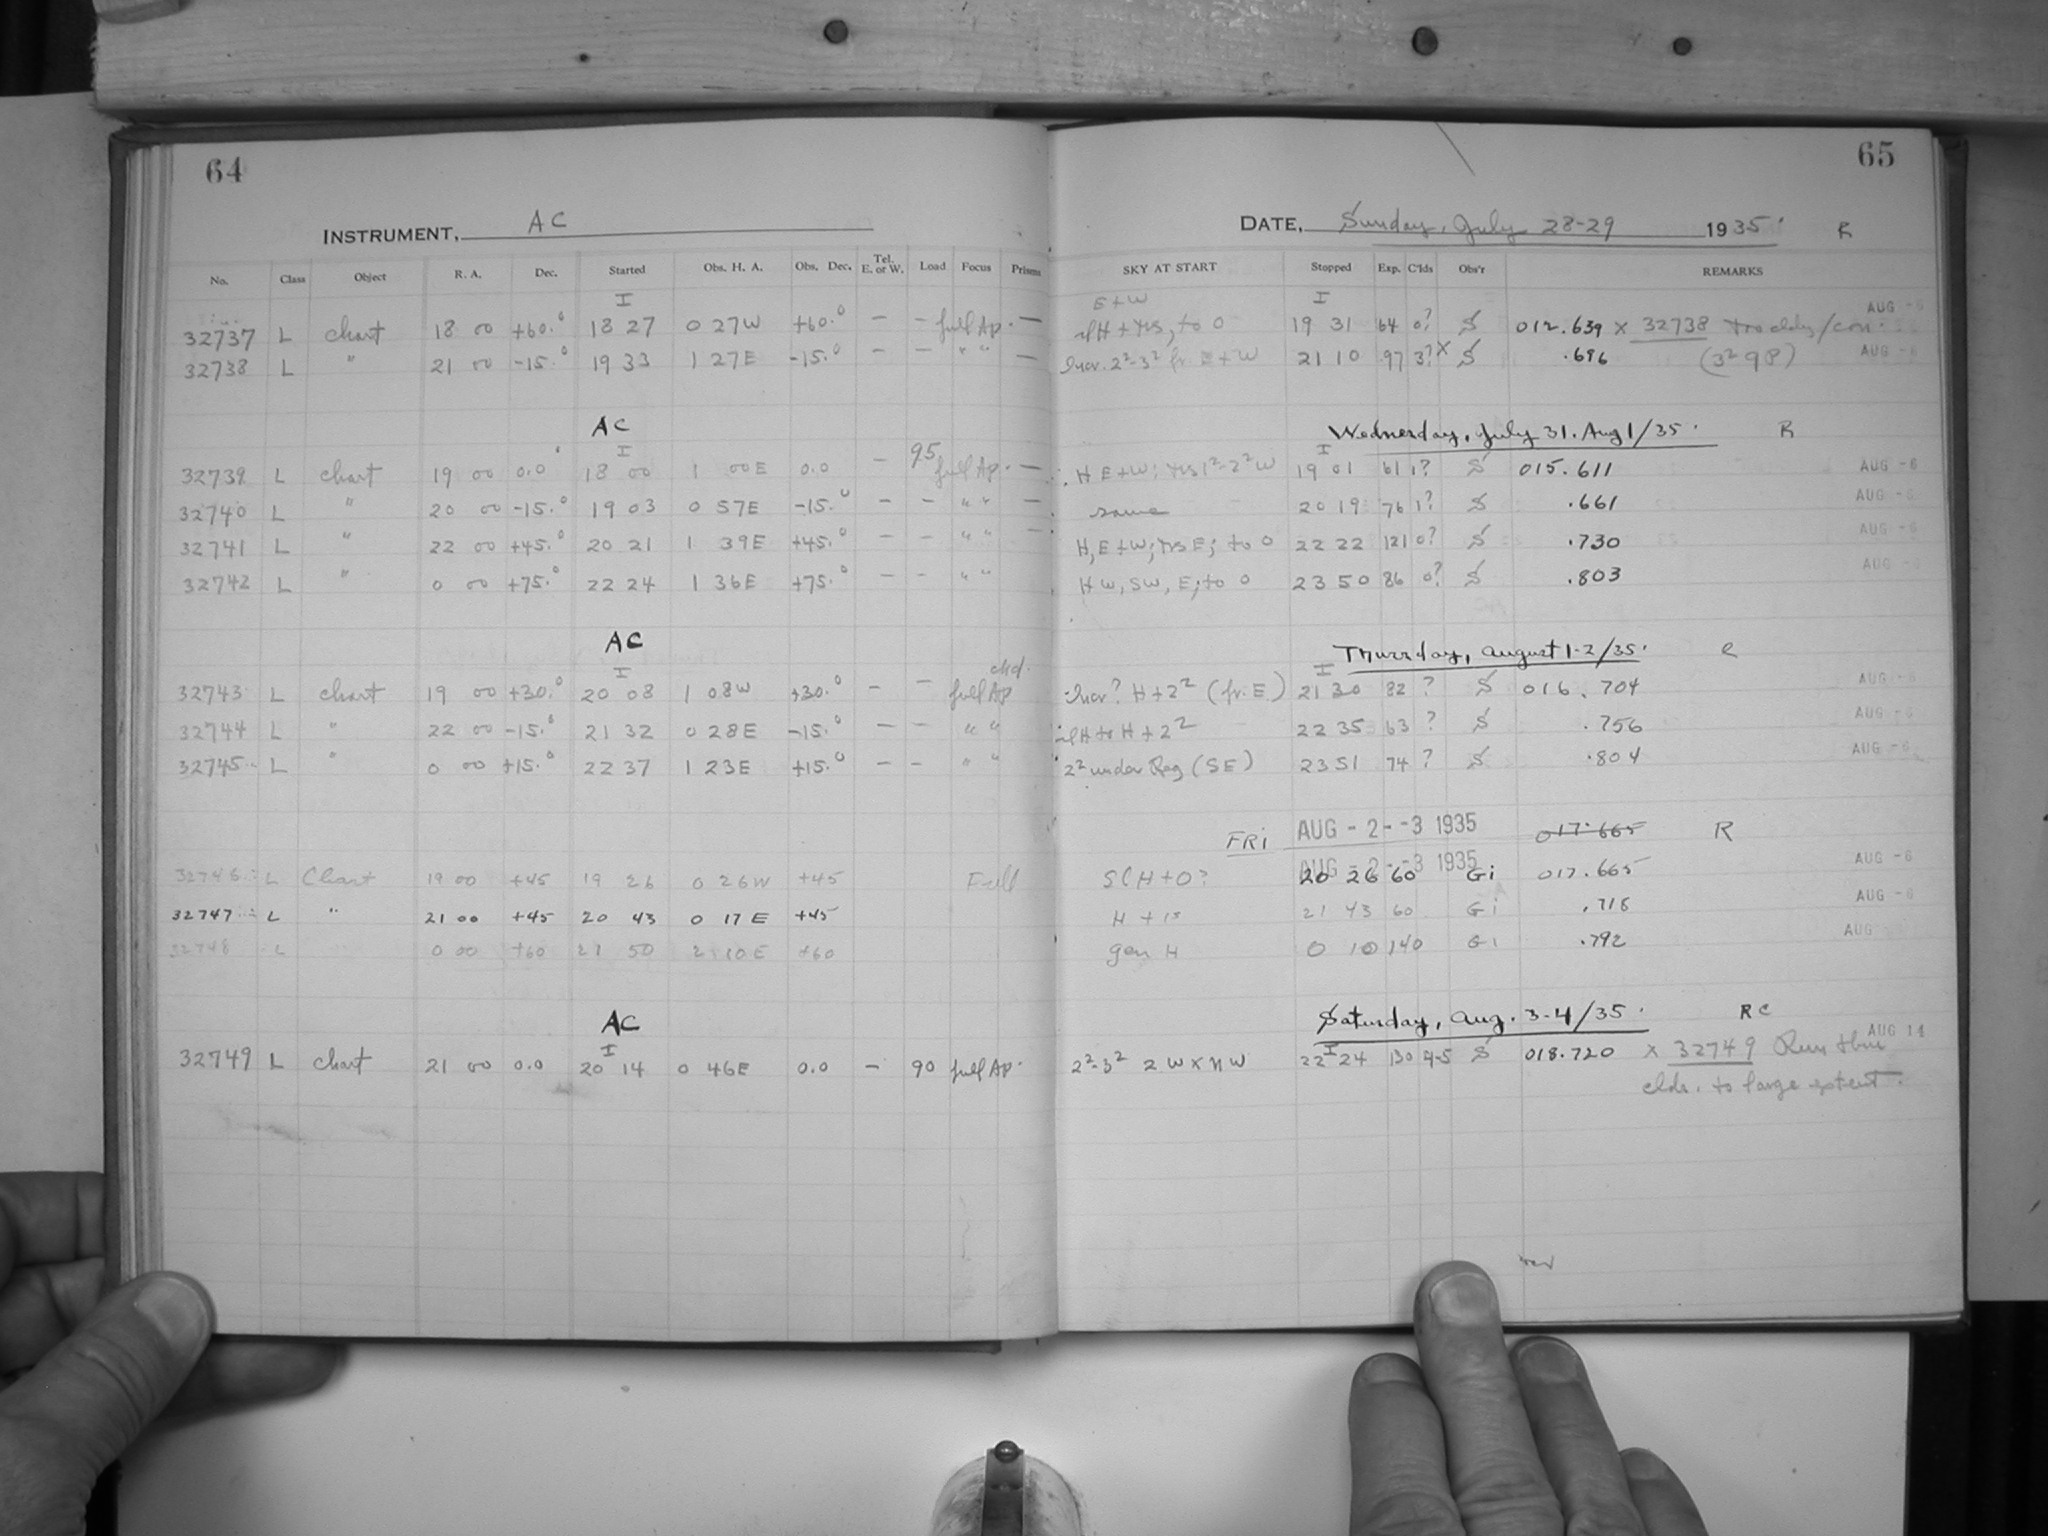 64
INSTRUMENT, AC
No. Class Object R. A. Dec. Started Obs. H. A. Obs. Dec. Tel. E. or W. Load Focus Prisms
I
32737 L chart 18 00 +60.° 18 27 0 27W +60.° — — full Ap. —
32738 L " 21 00 -15.° 19 33 1 27E -15.° — — " " —
AC
I
32739 L chart 19 00 0.0 18 00 1 00E 0.0 — 95 full Ap. —
32740 L " 20 00 -15.° 19 03 0 57E -15.° — — " " —
32741 L " 22 00 +45.° 20 21 1 39E +45.° — — " " —
32742 L " 0 00 +75.° 22 24 1 36E +75.° — — " "
AC
I chd.
32743 L chart 19 00 +30.° 20 08 1 08W +30.° — — full Ap
32744 L " 22 00 -15.° 21 32 0 28E -15.° — — " "
32745 L " 0 00 +15.° 22 37 1 23E +15.° — — " "
32746 L Chart 19 00 +45 19 26 0 26W +45 Full
32747 L " 21 00 +45 20 43 0 17E +45
32748 L 0 00 +60 21 50 2 10E +60
AC
I
32749 L chart 21 00 0.0 20 14 0 46E 0.0 — 90 full Ap.
65
DATE, Sunday, July 28-29 1935. R
SKY AT START Stopped Exp. C'lds Obs'r REMARKS
E+W I AUG -6
H + to 0 19 31 64 0? S 012.639 x 32738 too cldy/con.
2²-3² fr. E+W 21 10 97 3? x S .696 (3² 98) AUG -6
Wednesday, July 31. Aug 1/35. R
I
H E+W; 1²-2² W 19 01 61 1? S 015.611 AUG -6
same 20 19 76 1? S .661 AUG -6
H, E+W; E; to 0 22 22 121 0? S .730 AUG -6
H W, SW, E; to 0 23 50 86 0? S .803 AUG -6
Thursday, August 1-2/35.
I
H+2² (fr. E.) 21 30 82 ? S 016.704 AUG -6
to H+2² 22 35 63 ? S .756 AUG -6
2² under Peg (SE) 23 51 74 ? S .804 AUG -6
FRI AUG -2--3 1935 017.665 R
AUG -2--3 1935
SlH+0? 20 26 60 Gi 017.665 AUG -6
H + 21 43 60 Gi .718 AUG -6
gen H 0 10 140 Gi .792 AUG
Saturday, Aug. 3-4/35. RC
I AUG 14
2²-3² 2 W x NW 22 24 130 4-5 S 018.720 x 32749 Run thru
clds. to large extent.